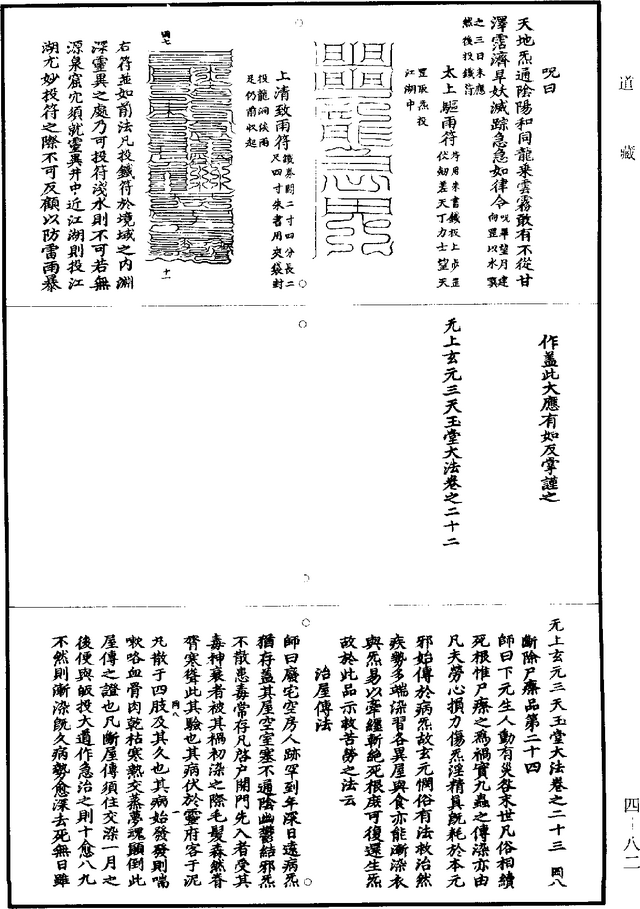 道藏
呪曰
天地炁通陰陽和同龍乘雲霧敢有不從甘
澤霑濟旱妖滅踪急急如律令呪畢望月建向罡以水噀
之三日未應然後投鐵符
太上驅雨符
罡取炁投江湖中
上清致雨符鐵券闊二寸四分長二尺四寸朱書用夾袋封
投龍洞候雨足仍前收起
四七
十一
右符並如前法凡投鐵符於境域之内淵
深靈異之處乃可投符淺水則不可若無
源泉窟穴須就靈異井中近江湖則投江
湖尤妙投符之際不可反顧以防雷雨暴
作蓋此大應有如反掌謹之
无上玄元三天玉堂大法卷之二十二
无上玄元三天玉堂大法卷之二十三 四八
斷除尸瘵品第二十四
師曰下元生人動有災咎末世凡俗相續
死根惟尸瘵之爲禍實九蟲之傳染亦由
凡夫勞心損力傷炁淫精具既耗於本元
邪始傳於病炁故玄元憫俗有法救治然
疾勢多端染習各異屋與食亦能漸染衣
與炁易以牽纏斬絕死根庶可復還生炁
故於此品示救苦勞之法云
治屋傳法
師曰廢宅空房人跡罕到年深日遠病炁
猶存蓋其屋空室塞不通陰幽鬱結邪炁
不散患毒常存凡啓户開門先入者受其
毒神衰者被其禍初染之際毛髮森然脊
膂寒聳此其驗也其病伏於靈府客于泥
丸散于四肢及其久也其病始發發則喘
嗽咯血骨肉乾枯寒熱交蒸夢魂顛倒此
屋傳之證也凡斷屋傳須往交染一月之
後便與皈投大道作急治之則十愈八九
不然則漸染既久病勢愈深去死無日雖
四八
一
四-八二